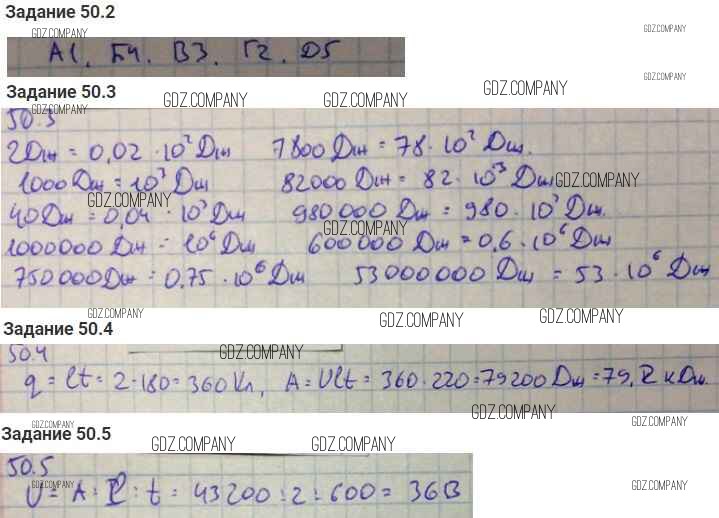 Задание 50.2
GDZ.COMPANY GDZ.COMPANY
А1. Б4. В3. Г2. D5
GDZ.COMPANY
Задание 50.3
GDZ.COMPANY GDZ.COMPANY GDZ.COMPANY
50.3
2Дж = 0,02 · 10² Дж 7800 Дж = 78 · 10² Дж.
1000 Дж = 10³ Дж 82000 Дж = 82 · 10³ Дж GDZ.COMPANY
GDZ.COMPANY
40 Дж = 0,04 · 10³ Дж 980 000 Дж = 980 · 10³ Дж.
GDZ.COMPANY
1000000 Дж = 10⁶ Дж 600 000 Дж = 0,6 · 10⁶ Дж
750 000 Дж = 0,75 · 10⁶ Дж 53 000 000 Дж = 53 · 10⁶ Дж
GDZ.COMPANY GDZ.COMPANY GDZ.COMPANY
Задание 50.4
50.4 GDZ.COMPANY
q = It = 2·180 = 360 Кл, A = UIt = 360·220 = 79200 Дж = 79,2 кДж.
GDZ.COMPANY GDZ.COMPANY
Задание 50.5
GDZ.COMPANY GDZ.COMPANY GDZ.COMPANY
50.5
GDZ.COMPANY GDZ.COMPANY
U = A : I : t = 43200 : 2 : 600 = 36В